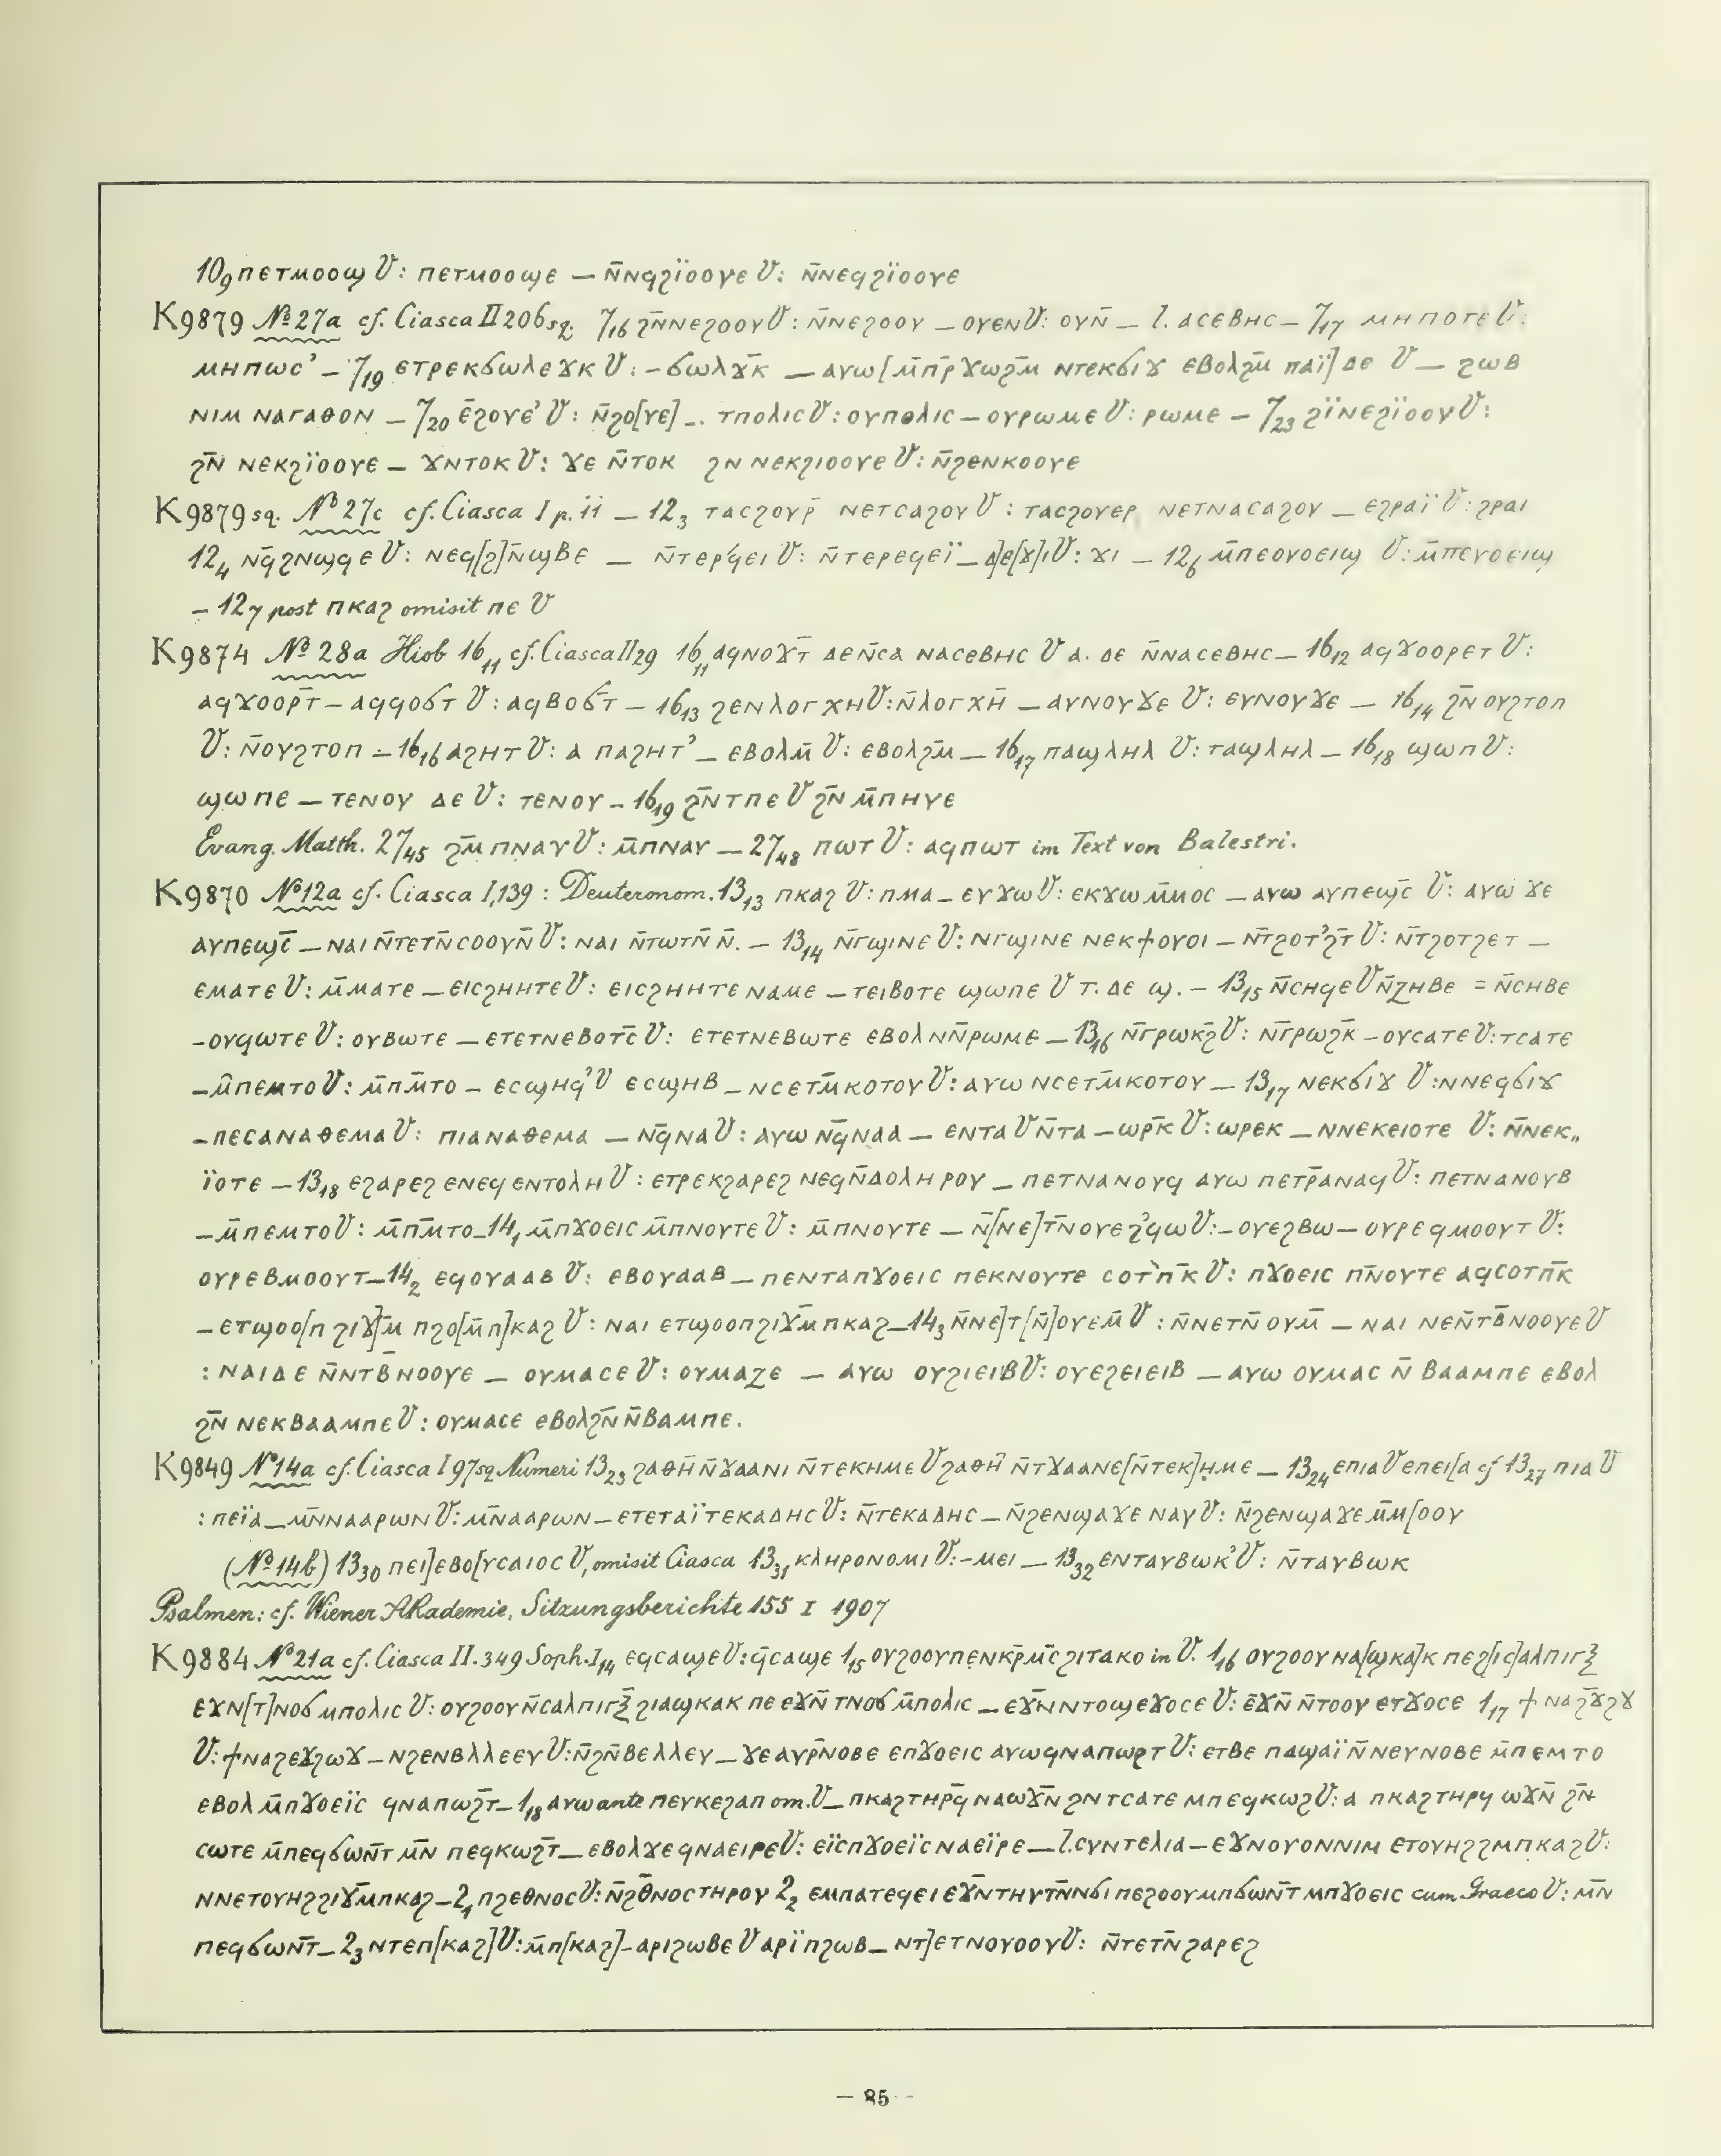 10₉ ⲡⲉⲧⲙⲟⲟϣ V: ⲡⲉⲧⲙⲟⲟϣⲉ — ⲛ̄ⲛϥϩⲓ̈ⲟⲟⲩⲉ V: ⲛ̄ⲛⲉϥϩⲓ̈ⲟⲟⲩⲉ
K9879 № 27a cf. Ciasca II 206 sq. 7₁₆ ϩⲛ̄ⲛⲉϩⲟⲟⲩ V: ⲛ̄ⲛⲉϩⲟⲟⲩ — ⲟⲩⲉⲛ V: ⲟⲩⲛ̄ — l. ⲁⲥⲉⲃⲏⲥ — 7₁₇ ⲙⲏⲡⲟⲧⲉ V:
ⲙⲏⲡⲱⲥ’ — 7₁₉ ⲉⲧⲣⲉⲕϭⲱⲗⲉϫⲕ V: -ϭⲱⲗϫ̄ⲕ — ⲁⲩⲱ [ⲙ̄ⲡⲣ̄ϫⲱϩⲙ̄ ⲛⲧⲉⲕϭⲓϫ ⲉⲃⲟⲗϩⲙ̄ ⲡⲁⲓ̈] ⲇⲉ V — ϩⲱⲃ
ⲛⲓⲙ ⲛⲁⲅⲁⲑⲟⲛ — 7₂₀ ⲉ̄ϩⲟⲩⲉ’ V: ⲛ̄ϩⲟ[ⲩⲉ] -. ⲧⲡⲟⲗⲓⲥ V: ⲟⲩⲡⲟⲗⲓⲥ — ⲟⲩⲣⲱⲙⲉ V: ⲣⲱⲙⲉ — 7₂₃ ϩⲓ̈ⲛⲉϩⲓ̈ⲟⲟⲩ V:
ϩⲛ̄ ⲛⲉⲕϩⲓ̈ⲟⲟⲩⲉ — ϫⲛⲧⲟⲕ V: ϫⲉ ⲛ̄ⲧⲟⲕ ϩⲛ ⲛⲉⲕϩⲓⲟⲟⲩⲉ V: ⲛ̄ϩⲉⲛⲕⲟⲟⲩⲉ
K9879 sq. № 27c cf. Ciasca I p. 11 — 12₃ ⲧⲁⲥϩⲟⲩⲣ̄ ⲛⲉⲧⲥⲁϩⲟⲩ V: ⲧⲁⲥϩⲟⲩⲉⲣ ⲛⲉⲧⲛⲁⲥⲁϩⲟⲩ — ⲉϩⲣⲁⲓ̈ V: ϩⲣⲁⲓ
12₄ ⲛϥ̄ϩⲛϣϥⲉ V: ⲛⲉϥ[ϩ]ⲛ̄ϣⲃⲉ — ⲛ̄ⲧⲉⲣ’ϥⲉⲓ V: ⲛ̄ⲧⲉⲣⲉϥⲉⲓ̈ — ⲇ]ⲉ[ϫ]ⲓ V: ϫⲓ — 12₆ ⲙ̄ⲡⲉⲟⲩⲟⲉⲓϣ V: ⲙ̄ⲡⲉⲩⲟⲉⲓϣ
— 12₇ post ⲡⲕⲁϩ omisit ⲡⲉ V
K9874 № 28a Hiob 16₁₁ cf. Ciasca II 29 16₁₁ ⲁϥⲛⲟϫⲧ̄ ⲇⲉⲛ̄ⲥⲁ ⲛⲁⲥⲉⲃⲏⲥ V ⲁ. ⲇⲉ ⲛ̄ⲛⲁⲥⲉⲃⲏⲥ — 16₁₂ ⲁϥϫⲟⲟⲣⲉⲧ V:
ⲁϥϫⲟⲟⲣ̄ⲧ — ⲁϥϥⲟϭⲧ V: ⲁϥⲃⲟϭ̄ⲧ — 16₁₃ ϩⲉⲛⲗⲟⲅⲭⲏ V: ⲛ̄ⲗⲟⲅⲭⲏ̄ — ⲁⲩⲛⲟⲩϫⲉ V: ⲉⲩⲛⲟⲩϫⲉ — 16₁₄ ϩⲛ̄ ⲟⲩϩⲧⲟⲡ
V: ⲛ̄ⲟⲩϩⲧⲟⲡ — 16₁₆ ⲁϩⲏⲧ V: ⲁ ⲡⲁϩⲏⲧ’ — ⲉⲃⲟⲗⲙ̄ V: ⲉⲃⲟⲗϩⲙ̄ — 16₁₇ ⲡⲁϣⲗⲏⲗ V: ⲧⲁϣⲗⲏⲗ — 16₁₈ ϣⲱⲡ V:
ϣⲱⲡⲉ — ⲧⲉⲛⲟⲩ ⲇⲉ V: ⲧⲉⲛⲟⲩ — 16₁₉ ϩⲛ̄ⲧⲡⲉ V ϩⲛ̄ ⲙ̄ⲡⲏⲩⲉ
Evang. Matth. 27₄₅ ϩⲙ̄ ⲡⲛⲁⲩ V: ⲙ̄ⲡⲛⲁⲩ — 27₄₈ ⲡⲱⲧ V: ⲁϥⲡⲱⲧ im Text von Balestri.
K9870 № 12a cf. Ciasca I, 139: Deuteronom. 13₁₃ ⲡⲕⲁϩ V: ⲡⲙⲁ — ⲉⲩϫⲱ V: ⲉⲕϫⲱ ⲙ̄ⲙⲟⲥ — ⲁⲩⲱ ⲁⲩⲡⲉϣⲥ̄ V: ⲁⲩⲱ ϫⲉ
ⲁⲩⲡⲉϣⲥ̄ — ⲛⲁⲓ ⲛ̄ⲧⲉⲧⲛ̄ⲥⲟⲟⲩⲛ̄ V: ⲛⲁⲓ ⲛ̄ⲧⲱⲧⲛ̄ ⲛ̄. — 13₁₄ ⲛ̄ⲅϣⲓⲛⲉ V: ⲛⲅϣⲓⲛⲉ ⲛⲉⲕϯⲟⲩⲟⲓ — ⲛ̄ⲧϩⲟⲧ’ϩ̄ⲧ V: ⲛ̄ⲧϩⲟⲧϩⲉⲧ —
ⲉⲙⲁⲧⲉ V: ⲙ̄ⲙⲁⲧⲉ — ⲉⲓⲥϩⲏⲏⲧⲉ V: ⲉⲓⲥϩⲏⲏⲧⲉ ⲛⲁⲙⲉ — ⲧⲉⲓⲃⲟⲧⲉ ϣⲱⲡⲉ V ⲧ. ⲇⲉ ϣ. — 13₁₅ ⲛ̄ⲥⲏϥⲉ V ⲛ̄ⲍⲏⲃⲉ = ⲛ̄ⲥⲏⲃⲉ
-ⲟⲩϥⲱⲧⲉ V: ⲟⲩⲃⲱⲧⲉ — ⲉⲧⲉⲧⲛⲉⲃⲟⲧⲥ̄ V: ⲉⲧⲉⲧⲛⲉⲃⲱⲧⲉ ⲉⲃⲟⲗ ⲛⲛ̄ⲣⲱⲙⲉ — 13₁₆ ⲛ̄ⲅⲣⲱⲕϩ̄ V: ⲛ̄ⲅⲣⲱϩⲕ̄ — ⲟⲩⲥⲁⲧⲉ V: ⲧⲥⲁⲧⲉ
-ⲙ̄ⲡⲉⲙⲧⲟ V: ⲙ̄ⲡⲙ̄ⲧⲟ — ⲉⲥϣⲏϥ’ V ⲉⲥϣⲏⲃ — ⲛⲥⲉⲧⲙ̄ⲕⲟⲧⲟⲩ V: ⲁⲩⲱ ⲛⲥⲉⲧⲙ̄ⲕⲟⲧⲟⲩ — 13₁₇ ⲛⲉⲕϭⲓϫ V: ⲛⲛⲉϥϭⲓϫ
-ⲡⲉⲥⲁⲛⲁⲑⲉⲙⲁ V: ⲡⲓⲁⲛⲁⲑⲉⲙⲁ — ⲛϥ̄ⲛⲁ V: ⲁⲩⲱ ⲛϥ̄ⲛⲁⲁ — ⲉⲛⲧⲁ V ⲛ̄ⲧⲁ — ⲱⲣⲕ̄ V: ⲱⲣⲉⲕ — ⲛⲛⲉⲕⲉⲓⲟⲧⲉ V: ⲛ̄ⲛⲉⲕ„
ⲓ̈ⲟⲧⲉ — 13₁₈ ⲉϩⲁⲣⲉϩ ⲉⲛⲉϥ ⲉⲛⲧⲟⲗⲏ V: ⲉⲧⲣⲉⲕϩⲁⲣⲉϩ ⲛⲉϥⲛ̄ⲇⲟⲗⲏ ⲣⲟⲩ — ⲡⲉⲧⲛⲁⲛⲟⲩϥ ⲁⲩⲱ ⲡⲉⲧⲣ̄ⲁⲛⲁϥ V: ⲡⲉⲧⲛⲁⲛⲟⲩⲃ
-ⲙ̄ⲡⲉⲙⲧⲟ V: ⲙ̄ⲡⲙ̄ⲧⲟ — 14₁ ⲙ̄ⲡϫⲟⲉⲓⲥ ⲙ̄ⲡⲛⲟⲩⲧⲉ V: ⲙ̄ⲡⲛⲟⲩⲧⲉ — ⲛ̄[ⲛⲉ]ⲧⲛ̄ⲟⲩⲉϩ’ϥⲱ V: -ⲟⲩⲉϩⲃⲱ — ⲟⲩⲣⲉϥⲙⲟⲟⲩⲧ V:
ⲟⲩⲣⲉⲃⲙⲟⲟⲩⲧ — 14₂ ⲉϥⲟⲩⲁⲁⲃ V: ⲉⲃⲟⲩⲁⲁⲃ — ⲡⲉⲛⲧⲁⲡϫⲟⲉⲓⲥ ⲡⲉⲕⲛⲟⲩⲧⲉ ⲥⲟⲧ’ⲡ̄ⲕ V: ⲡϫⲟⲉⲓⲥ ⲡⲛ̄ⲟⲩⲧⲉ ⲁϥⲥⲟⲧⲡ̄ⲕ
-ⲉⲧϣⲟⲟ[ⲡ ϩⲓϫ]ⲙ̄ ⲡϩⲟ[ⲙ̄ⲡ]ⲕⲁϩ V: ⲛⲁⲓ ⲉⲧϣⲟⲟⲡϩⲓϫⲙ̄ⲡⲕⲁϩ — 14₃ ⲛ̄ⲛⲉ]ⲧ[ⲛ̄]ⲟⲩⲉⲙ̄ V: ⲛ̄ⲛⲉⲧⲛ̄ ⲟⲩⲙ̄ — ⲛⲁⲓ ⲛⲉⲛ̄ⲧⲃ̄ⲛⲟⲟⲩⲉ V
: ⲛⲁⲓⲇⲉ ⲛ̄ⲛⲧⲃ̄ⲛⲟⲟⲩⲉ — ⲟⲩⲙⲁⲥⲉ V: ⲟⲩⲙⲁⲍⲉ — ⲁⲩⲱ ⲟⲩϩⲓⲉⲓⲃ V: ⲟⲩⲉϩⲉⲓⲉⲓⲃ — ⲁⲩⲱ ⲟⲩⲙⲁⲥ ⲛ̄ ⲃⲁⲁⲙⲡⲉ ⲉⲃⲟⲗ
ϩⲛ̄ ⲛⲉⲕⲃⲁⲁⲙⲡⲉ V: ⲟⲩⲙⲁⲥⲉ ⲉⲃⲟⲗϩⲛ̄ ⲛ̄ⲃⲁⲙⲡⲉ.
K9849 № 14a cf. Ciasca I 97 sq. Numeri 13₂₃ ϩⲁⲑⲏ̄ ⲛ̄ϫⲁⲁⲛⲓ ⲛ̄ⲧⲉⲕⲏⲙⲉ V ϩⲁⲑⲏ̄ ⲛ̄ⲧϫⲁⲁⲛⲉ[ⲛ̄ⲧⲉⲕ]ⲏⲙⲉ — 13₂₄ ⲉⲡⲓⲁ V ⲉⲡⲉⲓ[ⲁ cf 13₂₇ ⲡⲓⲁ V
: ⲡⲉⲓ̈ⲁ — ⲙⲛ̄ⲛⲁⲁⲣⲱⲛ V: ⲙⲛ̄ⲁⲁⲣⲱⲛ — ⲉⲧⲉⲧⲁⲓ̈ⲧⲉⲕⲁⲇⲏⲥ V: ⲛ̄ⲧⲉⲕⲁⲇⲏⲥ — ⲛ̄ϩⲉⲛϣⲁϫⲉ ⲛⲁⲩ V: ⲛ̄ϩⲉⲛϣⲁϫⲉ ⲙ̄ⲙ[ⲟⲟⲩ
(№ 14b) 13₃₀ ⲡⲉⲓ]ⲉⲃⲟ[ⲩⲥⲁⲓⲟⲥ V, omisit Ciasca 13₃₁ ⲕⲗⲏⲣⲟⲛⲟⲙⲓ V: -ⲙⲉⲓ — 13₃₂ ⲉⲛⲧⲁⲩⲃⲱⲕ’ V: ⲛ̄ⲧⲁⲩⲃⲱⲕ
Psalmen: cf. Wiener Akademie, Sitzungsberichte 155 I 1907
K9884 № 21a cf. Ciasca II. 349 Soph. I₁₄ ⲉϥⲥⲁϣⲉ V: ϥ̄ⲥⲁϣⲉ 1₁₅ ⲟⲩϩⲟⲟⲩⲡⲉⲛⲕⲣ̄ⲙⲥ̄ ϩⲓⲧⲁⲕⲟ in V. 1₁₆ ⲟⲩϩⲟⲟⲩ ⲛⲁ[ϣⲕⲁ]ⲕ ⲡⲉϩ[ⲓⲥ]ⲁⲗⲡⲓⲅⲝ
ⲉϫⲛ[ⲧ]ⲛⲟϭ ⲙⲡⲟⲗⲓⲥ V: ⲟⲩϩⲟⲟⲩ ⲛ̄ⲥⲁⲗⲡⲓⲅⲝ ϩⲓⲁϣⲕⲁⲕ ⲡⲉ ⲉϫⲛ̄ ⲧⲛⲟϭ ⲙ̄ⲡⲟⲗⲓⲥ — ⲉϫⲛ̄ⲛⲧⲟϣⲉϫⲟⲥⲉ V: ⲉ̄ϫⲛ̄ ⲛ̄ⲧⲟⲟⲩ ⲉⲧϫⲟⲥⲉ 1₁₇ ϯ ⲛⲁϩϫ̄ϩϫ
V: ϯⲛⲁϩⲉϫϩⲱϫ — ⲛϩⲉⲛⲃⲗⲗⲉⲉⲩ V: ⲛ̄ϩⲛ̄ⲃⲉⲗⲗⲉⲩ — ϫⲉ ⲁⲩⲣ̄ⲛⲟⲃⲉ ⲉⲡϫⲟⲉⲓⲥ ⲁⲩⲱϥⲛⲁⲡⲱϩⲧ V: ⲉⲧⲃⲉ ⲡⲁϣⲁⲓ̈ ⲛ̄ⲛⲉⲩⲛⲟⲃⲉ ⲙ̄ⲡⲉⲙⲧⲟ
ⲉⲃⲟⲗ ⲙ̄ⲡϫⲟⲉⲓ̈ⲥ ϥⲛⲁⲡⲱϩ̄ⲧ — 1₁₈ ⲁⲩⲱ ante ⲡⲉⲩⲕⲉϩⲁⲡ om. V — ⲡⲕⲁϩⲧⲏⲣϥ̄ ⲛⲁⲱϫⲛ̄ ϩⲛ ⲧⲥⲁⲧⲉ ⲙⲡⲉϥⲕⲱϩ V: ⲁ ⲡⲕⲁϩⲧⲏⲣϥ ⲱϫⲛ̄ ϩⲛ̄
ⲥⲱⲧⲉ ⲙ̄ⲡⲉϥϭⲱⲛ̄ⲧ ⲙⲛ̄ ⲡⲉϥⲕⲱϩ̄ⲧ — ⲉⲃⲟⲗϫⲉ ϥⲛⲁⲉⲓⲣⲉ V: ⲉⲓ̈ⲥⲡϫⲟⲉⲓ̈ⲥ ⲛⲁⲉⲓ̈ⲣⲉ — l. ⲥⲩⲛⲧⲉⲗⲓⲁ — ⲉϫⲛⲟⲩⲟⲛⲛⲓⲙ ⲉⲧⲟⲩⲏϩϩⲙⲡⲕⲁϩ V:
ⲛⲛⲉⲧⲟⲩⲏϩϩⲓϫⲙ̄ⲡⲕⲁϩ — 2₁ ⲡϩⲉⲑⲛⲟⲥ V: ⲛ̄ϩⲑ̄ⲛⲟⲥⲧⲏⲣⲟⲩ 2₂ ⲉⲙⲡⲁⲧⲉϥⲉⲓ ⲉϫⲛ̄ⲧⲏⲩⲧⲛ̄ⲛϭⲓ ⲡⲉϩⲟⲟⲩⲙⲡϭⲱⲛ̄ⲧ ⲙⲡϫⲟⲉⲓⲥ cum Graeco V: ⲙⲛ̄
ⲡⲉϥϭⲱⲛ̄ⲧ — 2₃ ⲛⲧⲉⲡ[ⲕⲁϩ] V: ⲙ̄ⲡ[ⲕⲁϩ] - ⲁⲣⲓϩⲱⲃⲉ V ⲁⲣⲓ̈ ⲡϩⲱⲃ — ⲛⲧ]ⲉⲧⲛⲟⲩⲟⲟⲩ V: ⲛ̄ⲧⲉⲧⲛ̄ ϩⲁⲣⲉϩ
— 85 —